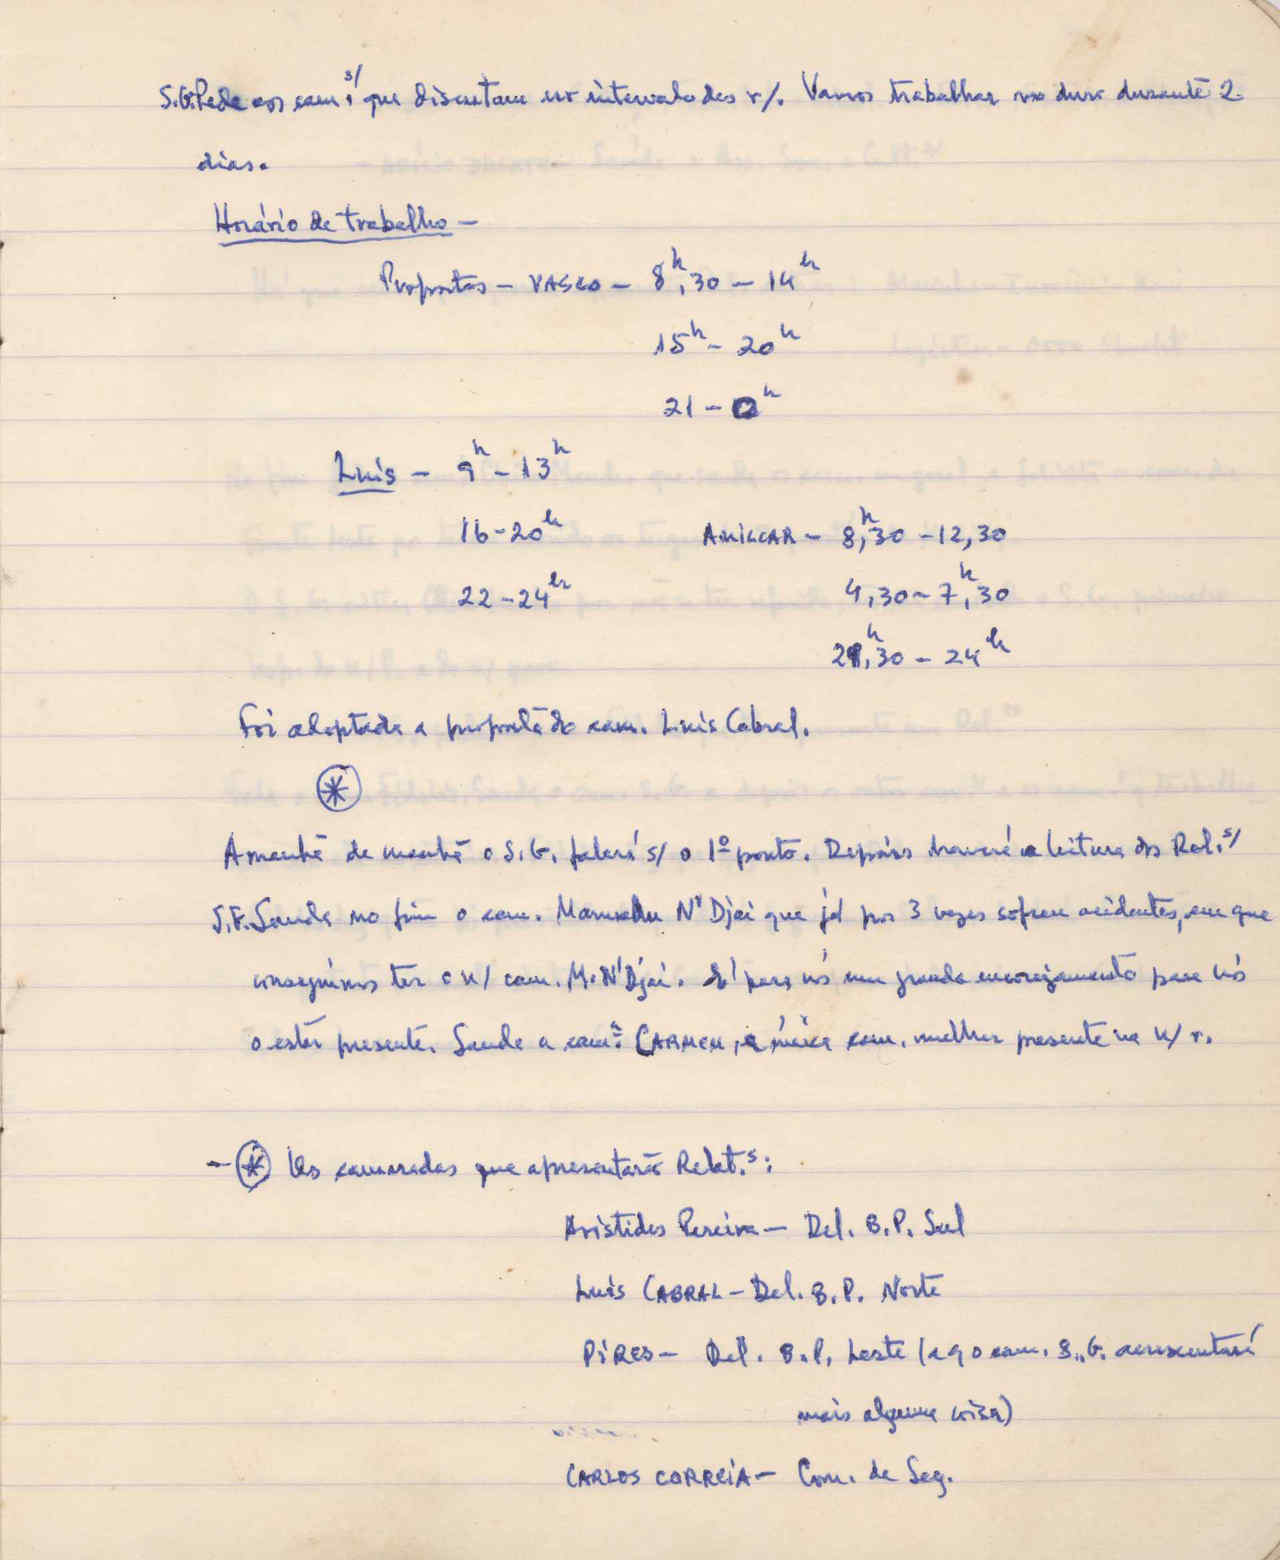 S.G. Pede aos cam.s/ que discutam no intervalo das r/. Vamos trabalhar no duro durante 2
dias.
Horário de trabalho –
Propostas – VASCO – 8h,30 – 14h
15h – 20h
21 – 0h
Luís – 9h – 13h
16 – 20h AMILCAR – 8h,30 – 12,30
22 – 24h 4,30 – 7h,30
21h,30 – 24h
Foi adoptada a proposta do cam. Luís Cabral.
Amanhã de manhã o S.G. falará s/ o 1º ponto. Depois haverá a leitura dos Rel.s/
S.G. Saúda no fim o cam. Mamadu N'Djai que já por 3 vezes sofreu acidentes, em que
conseguimos ter o n/ cam. M. N'Djai. É para nós um grande encorajamento para nós
o estar presente. Saúda a cam.ª CARMEN, a única cam. mulher presente na n/ r.
– Os camaradas que apresentarão Relat.s:
Aristides Pereira – Del. B.P. Sul
Luís CABRAL – Del. B.P. Norte
PIRES – Del. B.P. Leste (a q o cam. S.G. acrescentará
mais alguma coisa)
CARLOS CORREIA – Com. de Seg.